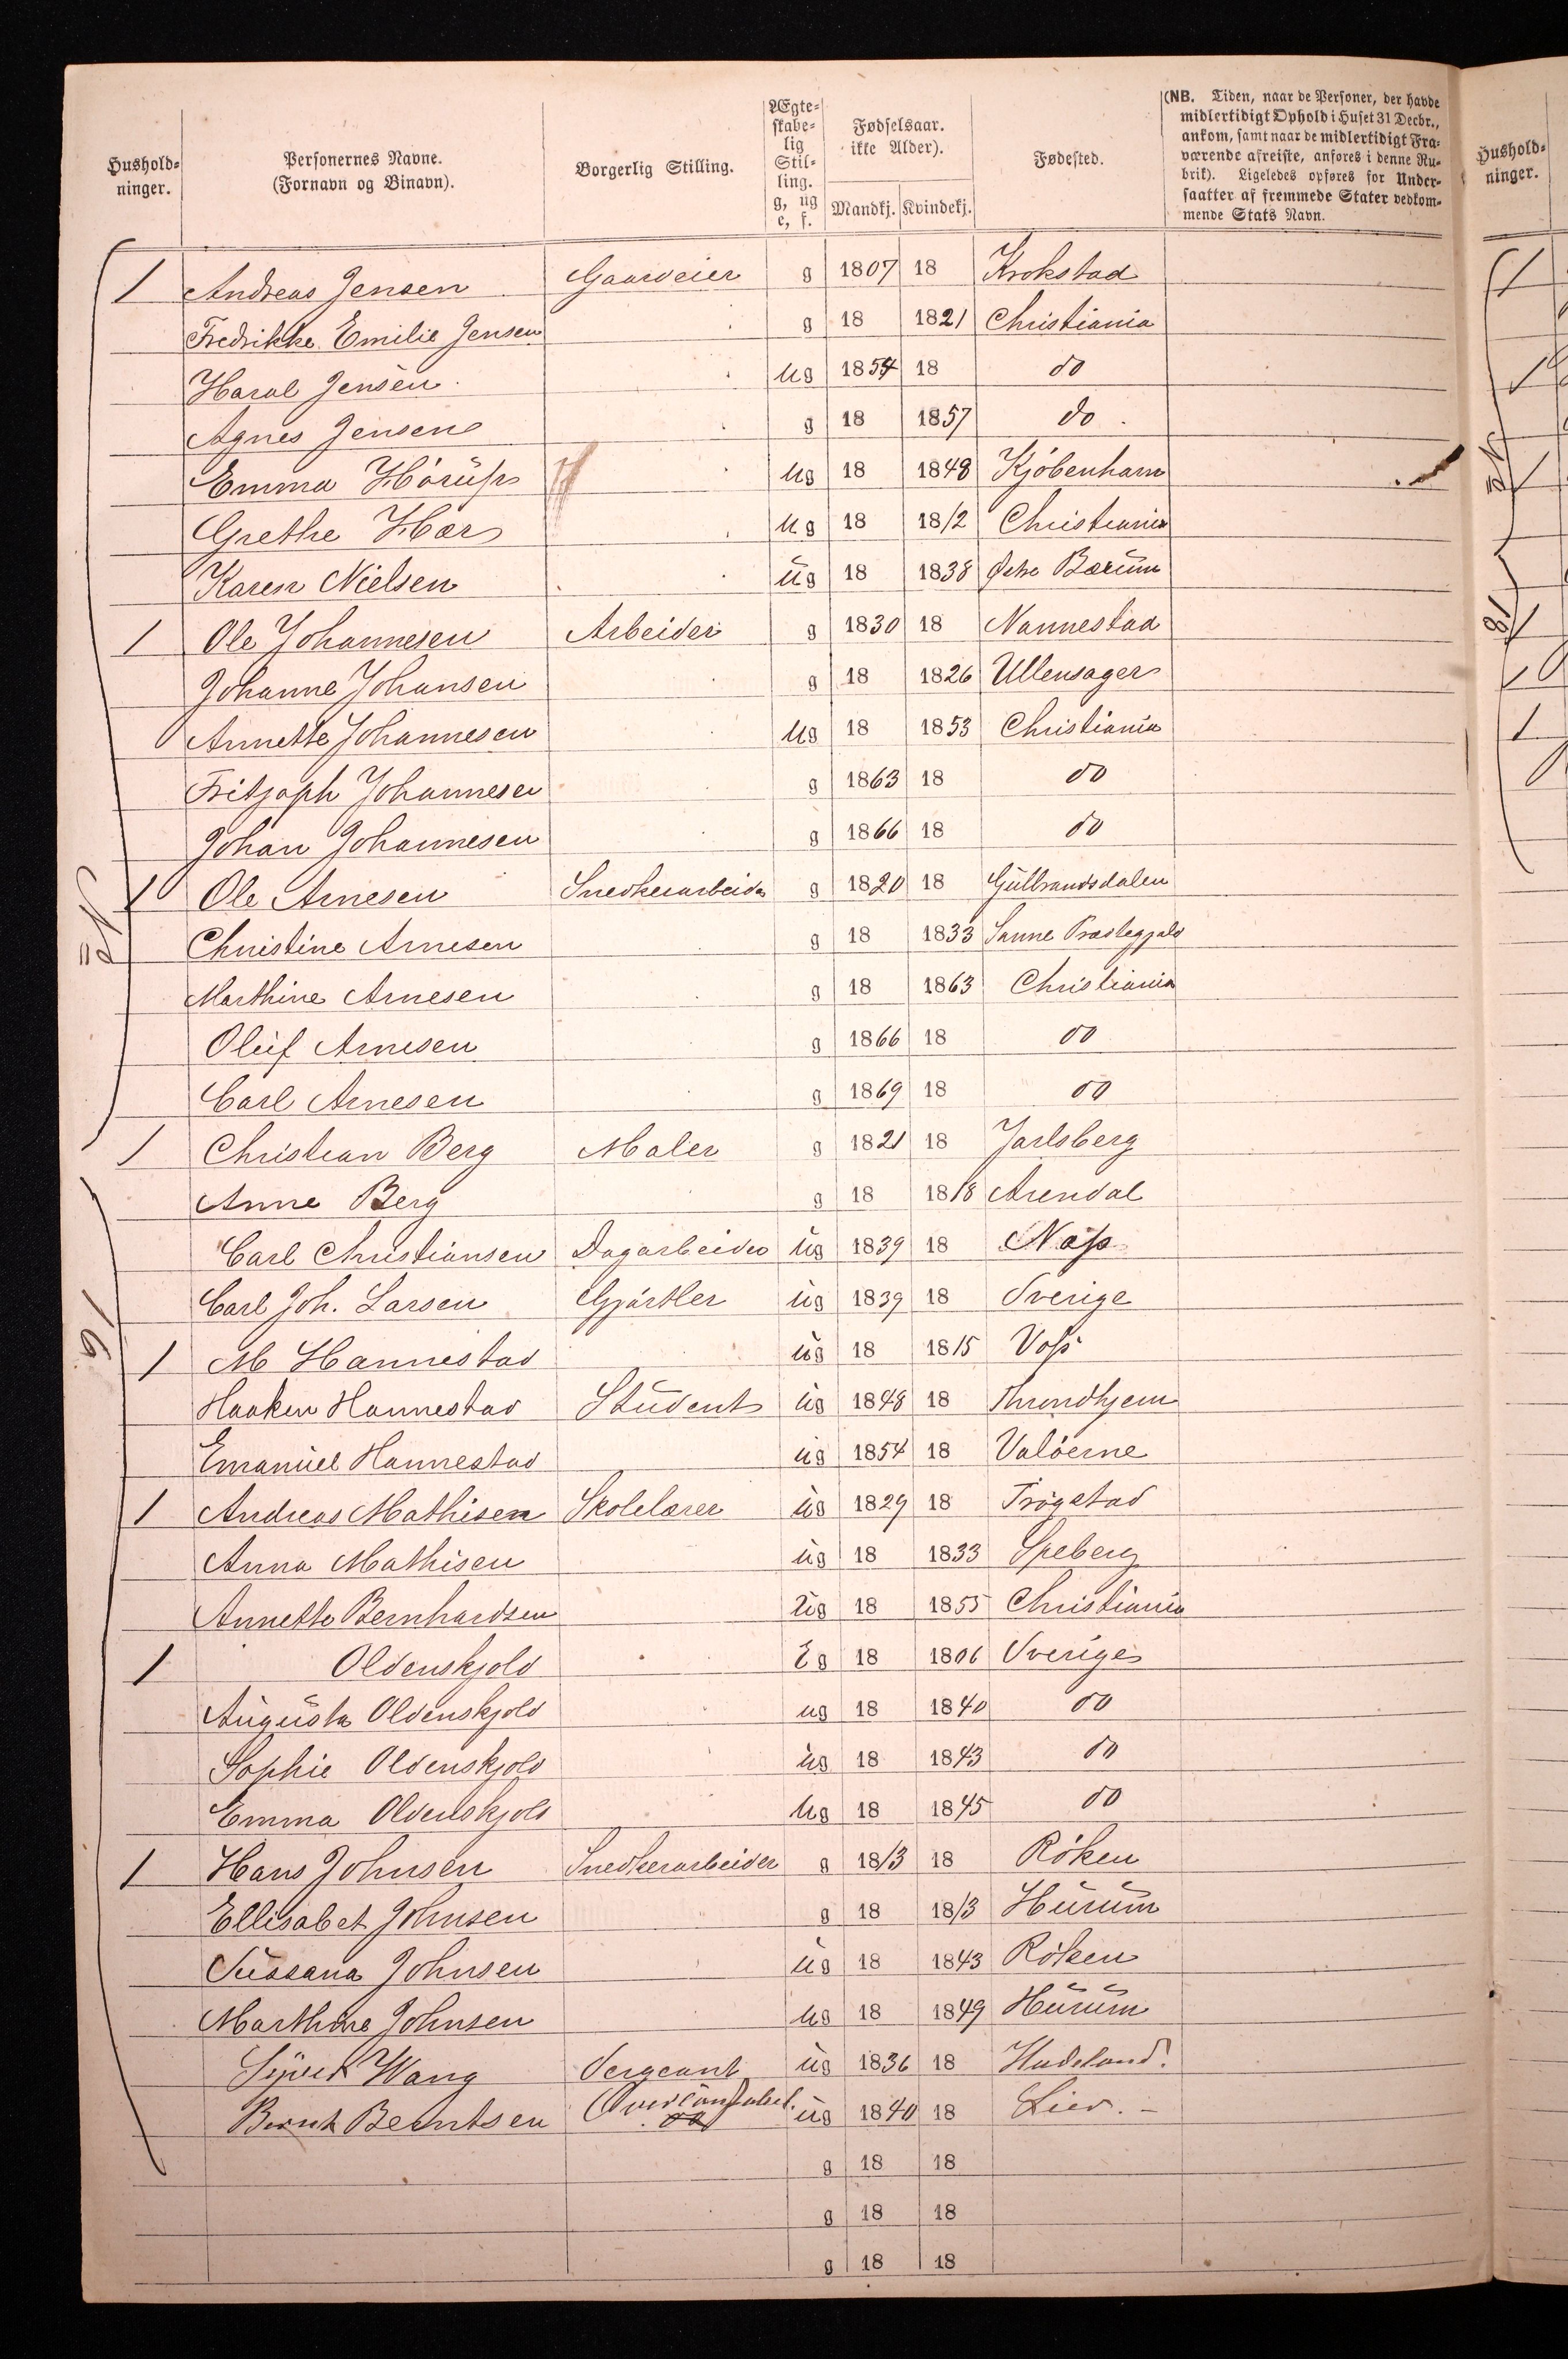 Hushold-
ninger.
Personernes Navne.
(Fornavn og Binavn).
Borgerlig Stilling.
Ægte-
skabe-
lig
Stil-
ling.
g, ug
e, f.
Fødselsaar.
ikke Alder).
Mandkj. Kvindekj.
Fødested.
(NB. Tiden, naar de Personer, der havde
midlertidigt Ophold i Huset 31 Decbr.,
ankom, samt naar de midlertidigt Fra-
værende afreiste, anføres i denne Ru-
brik). Ligeledes opføres for Under-
saatter af fremmede Stater vedkom-
mende Stats Navn.
Hushold-
ninger.
1 Andreas Jensen Gaardeier g 1807 18 Krokstad
Fredrikke Emilie Jensen g 18 1821 Christiania
Haral Jensen ug 1854 18 do
Agnes Jensen g 18 1857 do
Emma ug 18 1848 Kjöbenhavn
Grethe ug 18 1812 Christiania
Karen Nielsen ug 18 1838 Bærum
1 Ole Johannesen Arbeider g 1830 18 Nannestad
Johanne Johansen g 18 1826 Ullensager
Annette Johannesen ug 18 1853 Christiania
Fritjoph Johannesen g 1863 18 do
Johan Johannesen g 1866 18 do
1 Ole Arnesen Snedkerarbeider g 1820 18 Gulbrandsdalen
Christine Arnesen g 18 1833 Sanne Præstegjeld
Marthine Arnesen g 18 1863 Christiania
Oluf Arnesen g 1866 18 do
Carl Arnesen g 1869 18 do
1 Christian Berg Maler g 1821 18 Jarlsberg
Anne Berg g 18 1818 Arendal
Carl Christiansen Dagarbeider ug 1839 18 Næss
Carl Joh. Larsen Gjørtler ug 1839 18 Sverige
1 M Hannestad ug 18 1815 Voss
Haaken Hannestad Student ug 1848 18 Throndhjem
Emanuel Hannestad ug 1854 18 Valöerne
1 Andreas Mathisen Skolelærer ug 1829 18 Trögstad
Anna Mathisen ug 18 1833 Speberg
Annette Bernhardsen ug 18 1855 Christiania
1 Oldenskjold Eg 18 1806 Sverige
Augusta Oldenskjold ug 18 1840 do
Sophie Oldenskjold ug 18 1843 do
Emma Oldenskjold ug 18 1845 do
1 Hans Johnsen Snedkerarbeider g 1813 18 Röken
Ellisabet Johnsen g 18 1813 Hurum
Sussana Johnsen ug 18 1843 Röken
Marthine Johnsen ug 18 1849 Hurum
Syvert Wang Sergeant ug 1836 18 Hadeland.
Bernt Berntsen Overconstabel. do ug 1840 18 Lier. –
g 18 18
g 18 18
g 18 18
16
18